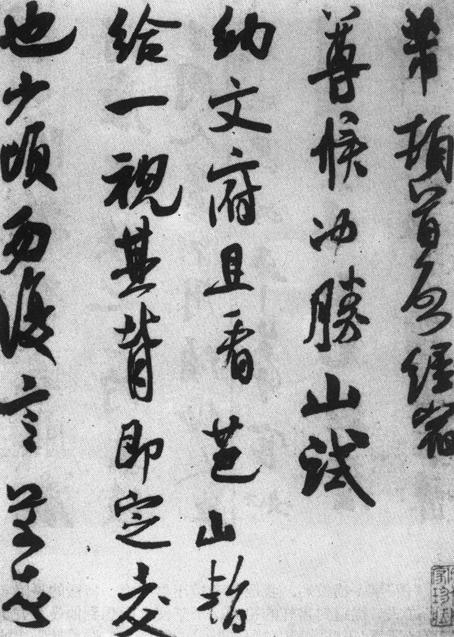 芾頓首啓經宿
尊候冲勝山試
納文府且看芭山暫
給一視其背即定交
也少頃勿復言芾頓首